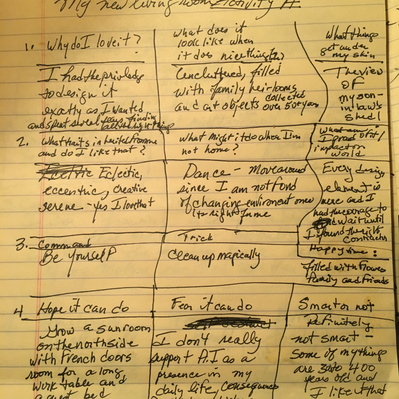 My new living room Activity A
1. Why do I love it?
I had the priviledge
to design it
exactly as I wanted
and spent several years finding
all the right things
What does it
look like when
it does nice things
Uncluttered, filled
with family heirlooms
and art objects collected
over 50 years
What things
get under
my skin
The view
of
my son-
in-law's
shed!
2. What traits in
and do I like that?
Eclectic,
eccentric, creative
serene - yes I love that
What might it do when I'm
not home?
Dance - move around
since I am not fond
of changing environment once
it's right for me
What am
I proud of/
impact on
world
Every design
element is
mine and I
had the courage to
wait until
I found the right
3. Command
Be yourself
Trick
Clean up magically
Happy
filled with flowers
family and friends
4 Hope it can do
Grow a sunroom
on the north side
with French doors
room for a long
work table and
a guest bed
Fear it can do
I don't really
support A.I as a
presence in my
daily life, consequences
Smart or not
Definitely
not smart -
Some of my things
are 300 to 400
years old and
I like it that